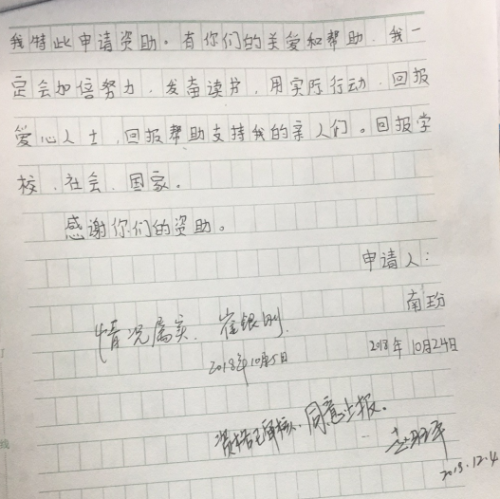 我特此申请资助。有你们的关爱和帮助、我一
定会加倍努力、发奋读书、用实际行动、回报
爱心人士、回报帮助支持我的亲人们。回报学
校、社会、国家。
感谢你们的资助。
申请人:
南玢
情况属实、崔银刚
2018年10月24日
2018年10月5日
同意上报。
2018.12.4